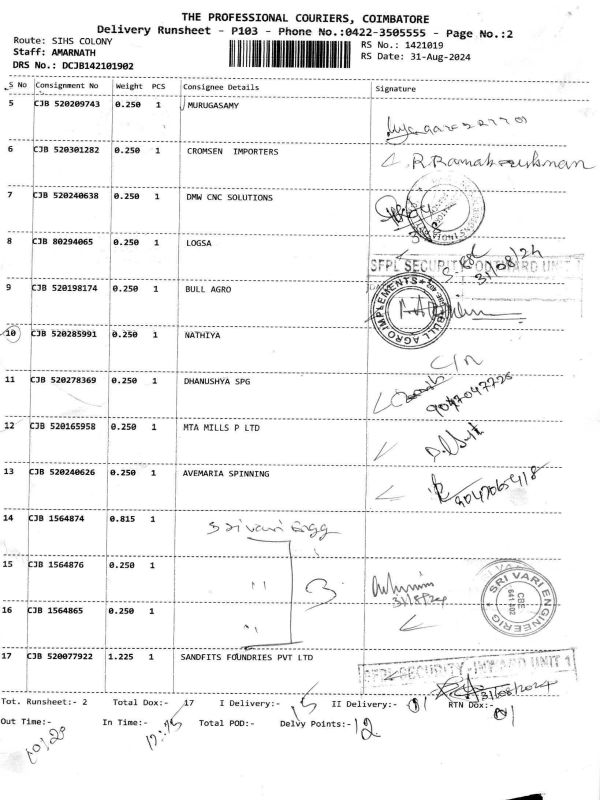 THE PROFESSIONAL COURIERS, COIMBATORE
Delivery Runsheet - P103 - Phone No.:0422-3505555 - Page No.:2
Route: SIHS COLONY RS No.: 1421019
Staff: AMARNATH RS Date: 31-Aug-2024
DRS No.: DCJB142101902
S No Consignment No Weight PCS Consignee Details Signature
5 CJB 520209743 0.250 1 MURUGASAMY
6 CJB 520301282 0.250 1 CROMSEN IMPORTERS
R. Ramakrishnan
7 CJB 520240638 0.250 1 DMW CNC SOLUTIONS
8 CJB 80294065 0.250 1 LOGSA
31/08/24
SFPL SECURITY UNIT 1
9 CJB 520198174 0.250 1 BULL AGRO
BULL AGRO IMPLEMENTS
10 CJB 520285991 0.250 1 NATHIYA
C/n
11 CJB 520278369 0.250 1 DHANUSHYA SPG
9047047725
12 CJB 520165958 0.250 1 MTA MILLS P LTD
13 CJB 520240626 0.250 1 AVEMARIA SPINNING
9047065418
14 CJB 1564874 0.815 1 Srivari Engg
15 CJB 1564876 0.250 1 " 3
SRI VARI ENGINEERIG
CBE
641 402
31/8/24
16 CJB 1564865 0.250 1 "
17 CJB 520077922 1.225 1 SANDFITS FOUNDRIES PVT LTD
SFPL SECURITY UNIT 1
31/08/2024
Tot. Runsheet:- 2 Total Dox:- 17 I Delivery:- 15 II Delivery:- 01 RTN Dox:- 01
Out Time:- 10.20 In Time:- 12:45 Total POD:- Delvy Points:- 12